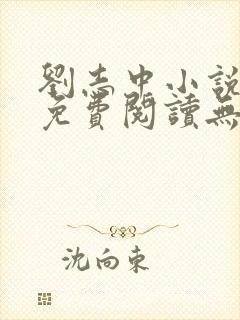 劉志中小說
免費閱讀無
沈向東